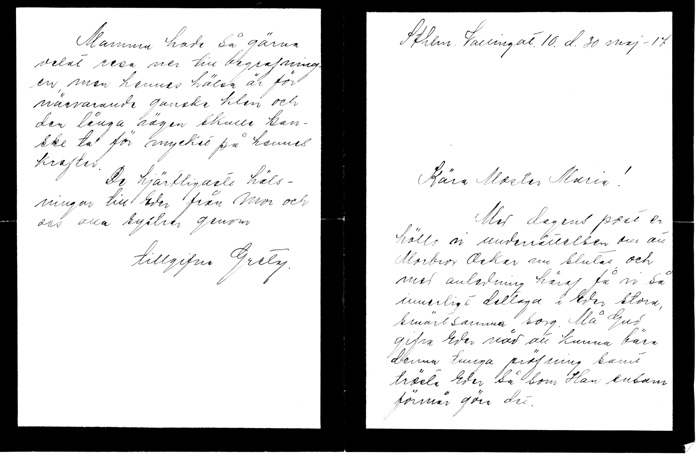 Sthlm. Vallingat. 10. d. 30 maj -17
Kära Moster Maria!
Med dagens post er-
höllo vi underrättelsen om att
Morbror Oskar nu slutat och
med anledning häraf få vi så
innerligt deltaga i Eder stora,
smärtsamma sorg. Må Gud
gifva Eder nåd att kunna bära
denna tunga pröfning samt
trösta Eder så som Han ensam
förmår göra det.
Mamma hade så gärna
velat resa ner till begrafning
en, men hennes hälsa är för
närvarande ganska klen och
den långa vägen skulle kan-
ske ta för mycket på hennes
krafter.
De hjärtligaste häls-
ningar till Eder från Mor och
oss alla syskon genom
tillgifna Greta.